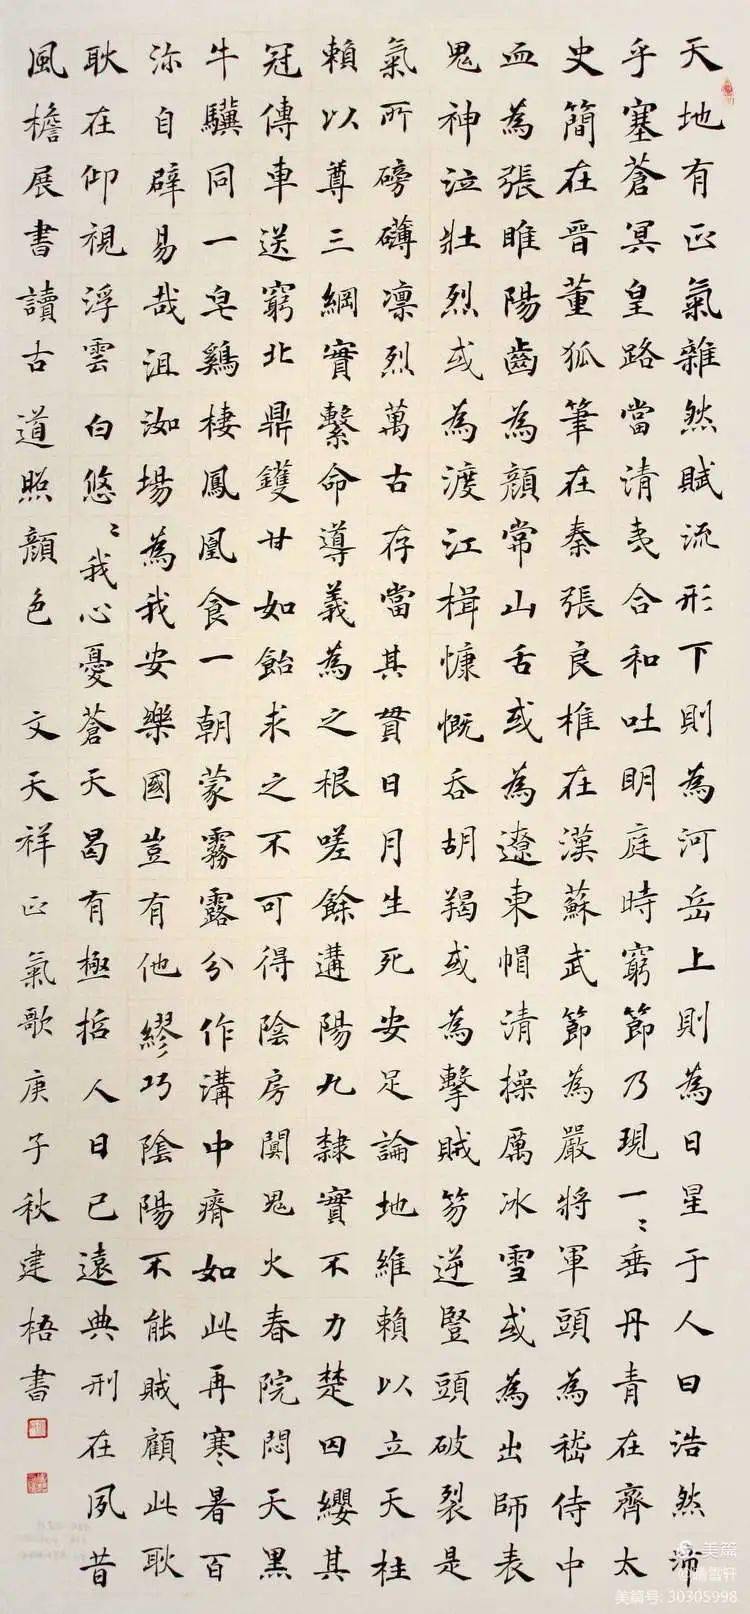 天地有正氣雜然賦流形下則為河岳上則為日星于人曰浩然沛
乎塞蒼冥皇路當清夷合和吐明庭時窮節乃現一〻垂丹青在齊太
史簡在晉董狐筆在秦張良椎在漢蘇武節為嚴將軍頭為嵇侍中
血為張睢陽齒為顏常山舌或為遼東帽清操厲冰雪或為出師表
鬼神泣壯烈或為渡江楫慷慨吞胡羯或為擊賊笏逆豎頭破裂是
氣所磅礴凛烈萬古存當其貫日月生死安足論地維賴以立天柱
賴以尊三綱實繫命導義為之根嗟餘遘陽九隸實不力楚囚纓其
冠傳車送窮北鼎鑊甘如飴求之不可得陰房闃鬼火春院悶天黑
牛驥同一皂鷄棲鳳凰食一朝蒙霧露分作溝中瘠如此再寒暑百
沴自辟易哉沮洳場為我安樂國豈有他繆巧陰陽不能賊顧此耿
耿在仰視浮雲白悠〻我心憂蒼天曷有極哲人日已遠典刑在夙昔
風檐展書讀古道照顏色 文天祥正氣歌庚子秋建梧書
美篇
美篇号: 30305998